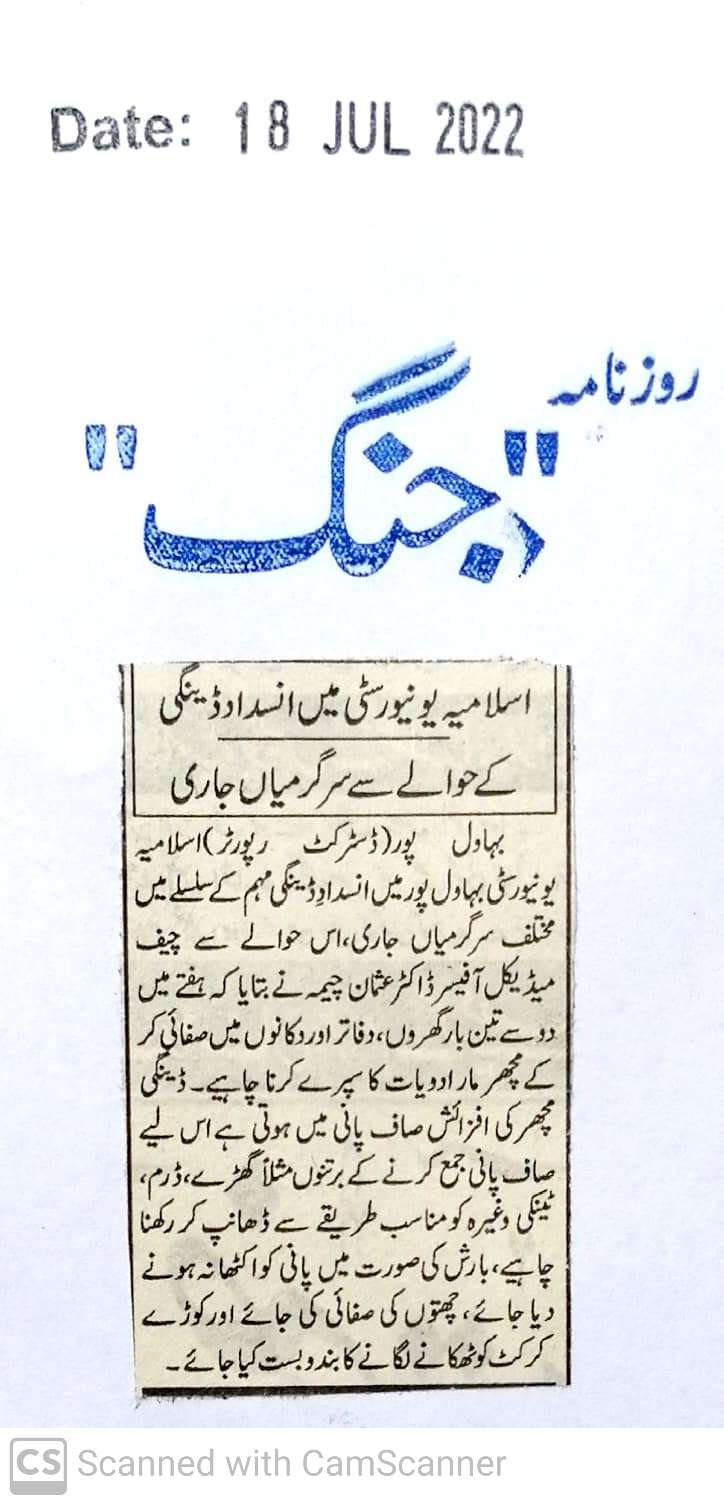 Date: 18 JUL 2022
روزنامہ
"جنگ"
اسلامیہ یونیورسٹی میں انسداد ڈینگی
کے حوالے سے سرگرمیاں جاری
بہاول پور(ڈسٹرکٹ رپورٹر)اسلامیہ
یونیورسٹی بہاول پور میں انسدادِ ڈینگی مہم کے سلسلے میں
مختلف سرگرمیاں جاری،اس حوالے سے چیف
میڈیکل آفیسر ڈاکٹر عثمان چیمہ نے بتایا کہ ہفتے میں
دو سے تین بار گھروں،دفاتر اور دکانوں میں صفائی کر
کے مچھر مار ادویات کا سپرے کرنا چاہیے۔ ڈینگی
مچھر کی افزائش صاف پانی میں ہوتی ہے اس لیے
صاف پانی جمع کرنے کے برتنوں مثلاً گھڑے،ڈرم،
ٹینکی وغیرہ کو مناسب طریقے سے ڈھانپ کر رکھنا
چاہیے،بارش کی صورت میں پانی کو اکٹھا نہ ہونے
دیا جائے، چھتوں کی صفائی کی جائے اور کوڑے
کرکٹ کو ٹھکانے لگانے کا بندوبست کیا جائے۔
CS Scanned with CamScanner